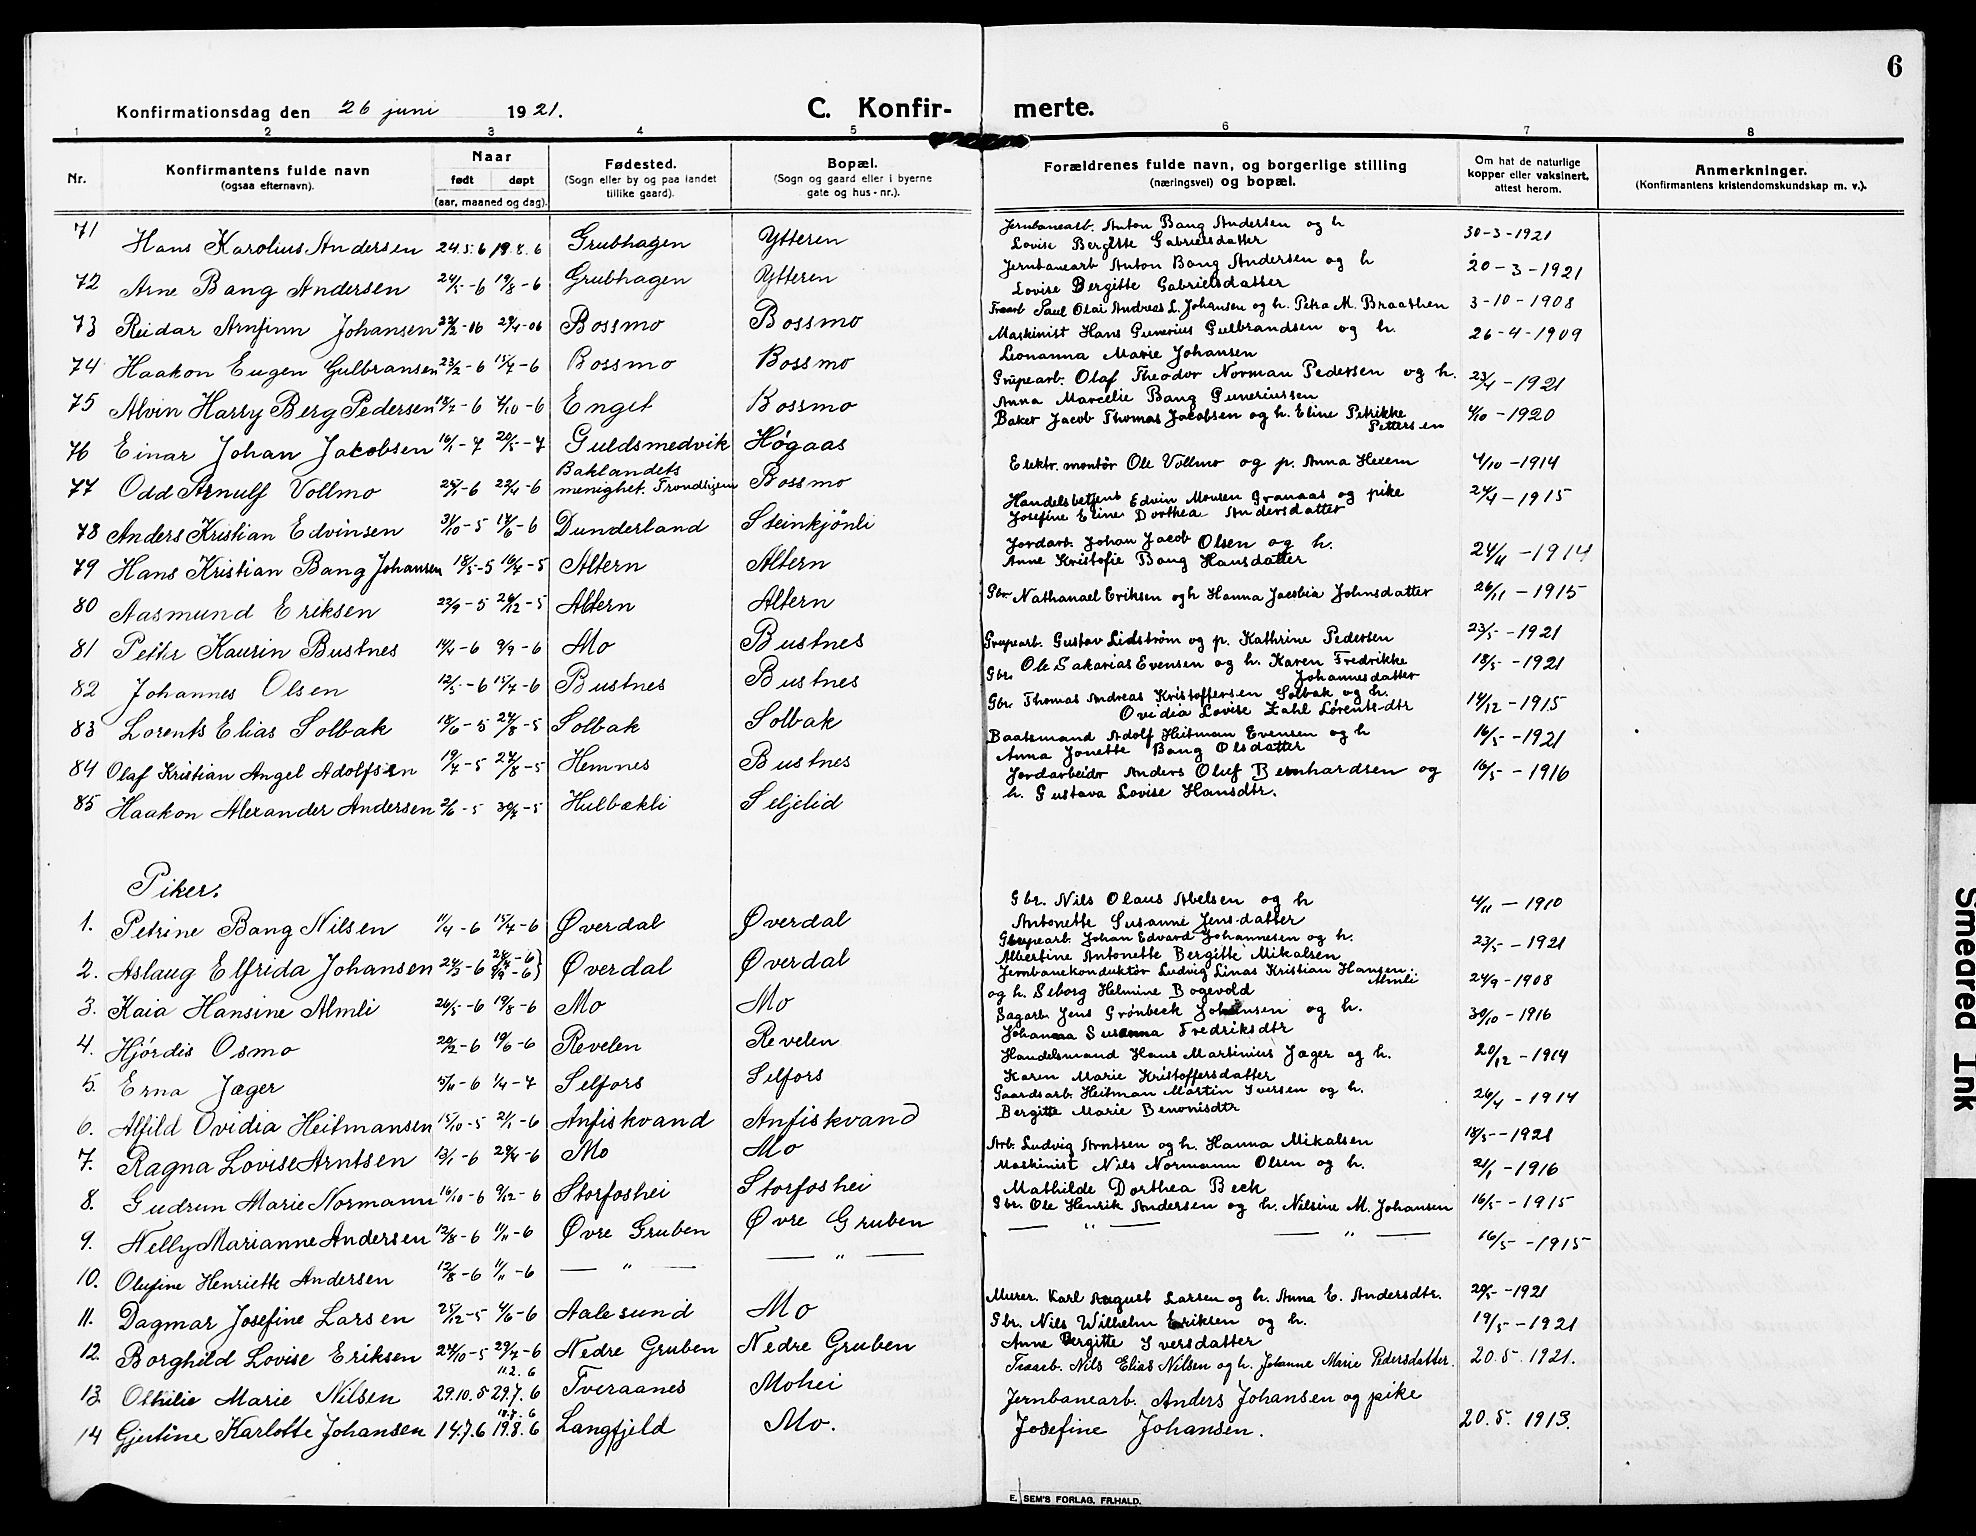 6
Konfirmationsdag den 26 juni 1921.
C. Konfir- merte.
1 2 3 4 5 6 7 8
Nr.
Konfirmantens fulde navn
(ogsaa efternavn).
Naar
født døpt
(aar, maaned og dag).
Fødested.
(Sogn eller by og paa landet
tillike gaard).
Bopæl.
(Sogn og gaard eller i byerne
gate og hus-nr.).
Forældrenes fulde navn, og borgerlige stilling
(næringsvei) og bopæl.
Om hat de naturlige
kopper eller vaksinert,
attest herom.
Anmerkninger.
(Konfirmantens kristendomskundskap m. v.).
71 Hans Karolius Andersen 24.5.6 19.8.6 Grubhagen Ytteren
Jernbanearb. Anton Bang Andersen og h
Lovise Bergitte Gabrielsdatter 30-3-1921
72 Arne Bang Andersen 24/5-6 19/8-6 Grubhagen Ytteren
Jernbanearb Anton Bang Andersen og h
Lovise Bergitte Gabrielsdatter 20-3-1921
73 Reidar Arnfinn Johansen 22/2-06 29/4-06 Bossmo Bossmo
Paul Olai Andreas L. Johansen og h. Petra M. Braathen 3-10-1908
74 Haakon Eugen Gulbransen 23/2-6 15/7-6 Bossmo Bossmo
Maskinist Hans Gunerius Gulbrandsen og h.
Leonanna Marie Johansen 26-4-1909
75 Alvin Harry Berg Pedersen 18/7-6 4/10-6 Enget Bossmo
Grupearb. Olaf Theodor Norman Pedersen og h.
Anna Marcelie Bang Guneriussen 23/4-1921
76 Einar Johan Jacobsen 16/1-7 20/5-7 Guldsmedvik Høgaas
Baker Jacob Thomas Jacobsen og h. Eline Petrikke
Pettersen 4/10-1920
77 Odd Arnulf Vollmo 25/1-6 22/4-6 Baklandets
menighet. Trondhjem Bossmo
Elektr. montør Ole Vollmo og p. Anna Hexem 4/10-1914
78 Anders Kristian Edvinsen 31/10-5 17/6-6 Dunderland Steinkjönli
Handelsbetjent Edvin Monsen Granaas og pike
Josefine Eline Dorthea Andersdatter 24/4-1915
79 Hans Kristian Bang Johansen 18/5-5 16/7-5 Altern Altern
Jordarb. Johan Jacob Olsen og h.
Anne Kristofie Bang Hansdatter 24/11-1914
80 Aasmund Eriksen 22/9-5 26/12-5 Altern Altern
Gbr Nathanael Eriksen og h Hanna Jacobia Johnsdatter 26/11-1915
81 Petter Kaurin Bustnes 14/4-6 9/9-6 Mo Bustnes
Grupearb. Gustav Lidstrøm og p. Kathrine Pedersen 23/5-1921
82 Johannes Olsen 12/5-6 15/7-6 Bustnes Bustnes
Gbr. Ole Sakarias Evensen og h. Karen Fredrikke
Johannesdatter 18/5-1921
83 Lorents Elias Solbak 18/6-5 27/8-5 Solbak Solbak
Gbr. Thomas Andreas Kristoffersen Solbak og h.
Ovidia Lovise Zahl Lørents-dtr 14/12-1915
84 Olaf Kristian Angel Adolfsen 19/7-5 27/8-5 Hemnes Bustnes
Baatsmand Adolf Heitman Evensen og h
Anna Jonette Bang Olsdatter 16/5-1921
85 Haakon Alexander Andersen 2/6-5 30/7-5 Hulbækli Seljelid
Jordarbeider Anders Oluf Bernhardsen og
h. Gustava Lovise Hansdtr. 16/5-1916
Piker.
1. Petrine Bang Nilsen 11/4-6 15/7-6 Øverdal Øverdal
Gbr. Nils Olaus Abelsen og h
Antonette Susanne Jens-datter 4/11-1910
2. Aslaug Elfrida Johansen 24/3-6 Øverdal Øverdal
Grupearb. Johan Edvard Johannesen og h.
Albertine Antonette Bergitte Mikalsen 23/5-1921
3. Kaia Hansine Almli 26/5-6 19/8-6 Mo Mo
Jernbanekonduktør Ludvig Linas Kristian Hansen
Almli
og h. Seborg Helmine Bogevold 24/9-1908
4. Hjördis Osmo 20/2-6 10/6-6 Revelen Revelen
Sagarb. Jens Grönbeck Johansen og h.
Johanna Susanna Fredriksdtr 30/10-1916
5. Erna Jæger 15/11-6 1/4-7 Selfors Selfors
Handelsmand Hans Martinius Jæger og h.
Karen Marie Kristoffersdatter 20/12-1914
6. Alfild Ovidia Heitmansen 15/10-5 21/1-6 Anfiskvand Anfiskvand
Gaardsarb. Heitman Martin Iversen og h.
Bergitte Marie Benonisdtr 26/4-1914
7. Ragna Lovise Arntsen 13/1-6 29/4-6 Mo Mo
Arb. Ludvig Arntsen og h. Hanna Mikalsen 18/5-1921
8. Gudrun Marie Normann 16/10-6 9/12-6 Storfoshei Storfoshei
Maskinist Nils Normann Olsen og h.
Mathilde Dorthea Beck 21/1-1916
9. Nelly Marianne Andersen 12/8-6 11/11-6 Øvre Gruben Øvre Gruben
Gbr. Ole Henrik Andersen og h. Nilsine M. Johansen 16/5-1915
10. Olufine Henriette Andersen 12/8-6 11/11-6 — " — — " —
— " — — " — 16/5-1915
11. Dagmar Josefine Larsen 25/12-5 4/6-6 Aalesund Mo
Murer. Karl August Larsen og h. Anna E. Andersdtr. 20/5-1921
12. Borghild Lovise Eriksen 24/10-5 29/7-6 Nedre Gruben Nedre Gruben
Gbr. Nils Wilhelm Eriksen og h.
Anne Bergitte Iversdatter 19/5-1921
13 Othilie Marie Nilsen 29.10.5 11.2.6 29.7.6 Tveraanes Mohei
Nils Elias Nilsen og h. Johanne Marie Pedersdatter. 20.5.1921.
14 Gjertine Karlotte Johansen 14.7.6 19.8.6 Langfjeld Mo.
Jernbanearb. Anders Johansen og pike
Josefine Johansen. 20.5.1913.
E. SEM'S FORLAG, FR.HALD.
Smeared Ink